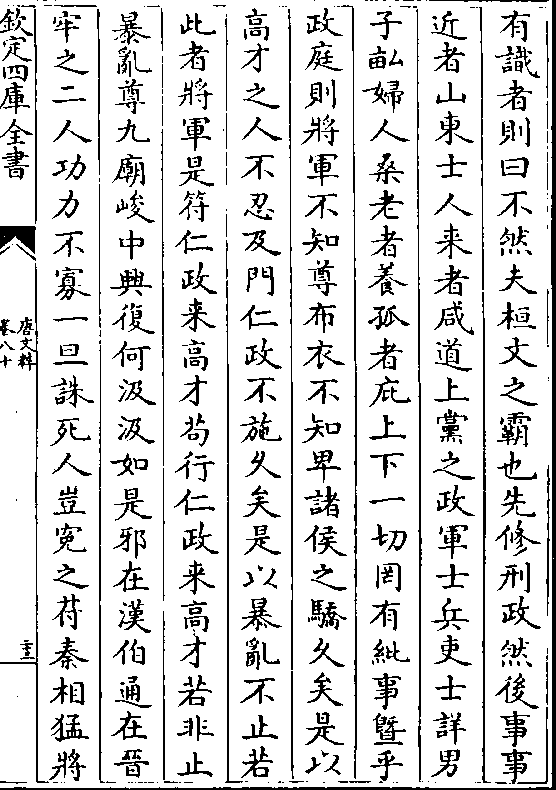 有識者則曰不然夫桓文之霸也先修刑政然後事事
近者山東士人来者咸道上黨之政軍士兵吏士詳男
子畝婦人桑老者養孤者庇上下一切罔有紕事曁乎
政庭則將軍不知尊布衣不知卑諸侯之驕久矣是以
高才之人不忍及門仁政不施久矣是以暴亂不止若
此者將軍是符仁政来高才茍行仁政来高才若非止
暴亂尊九廟峻中興復何汲汲如是邪在漢伯通在晉
牢之二人功力不寡一旦誅死人豈寃之苻秦相猛將
欽定四庫全書
唐文粹
卷八十